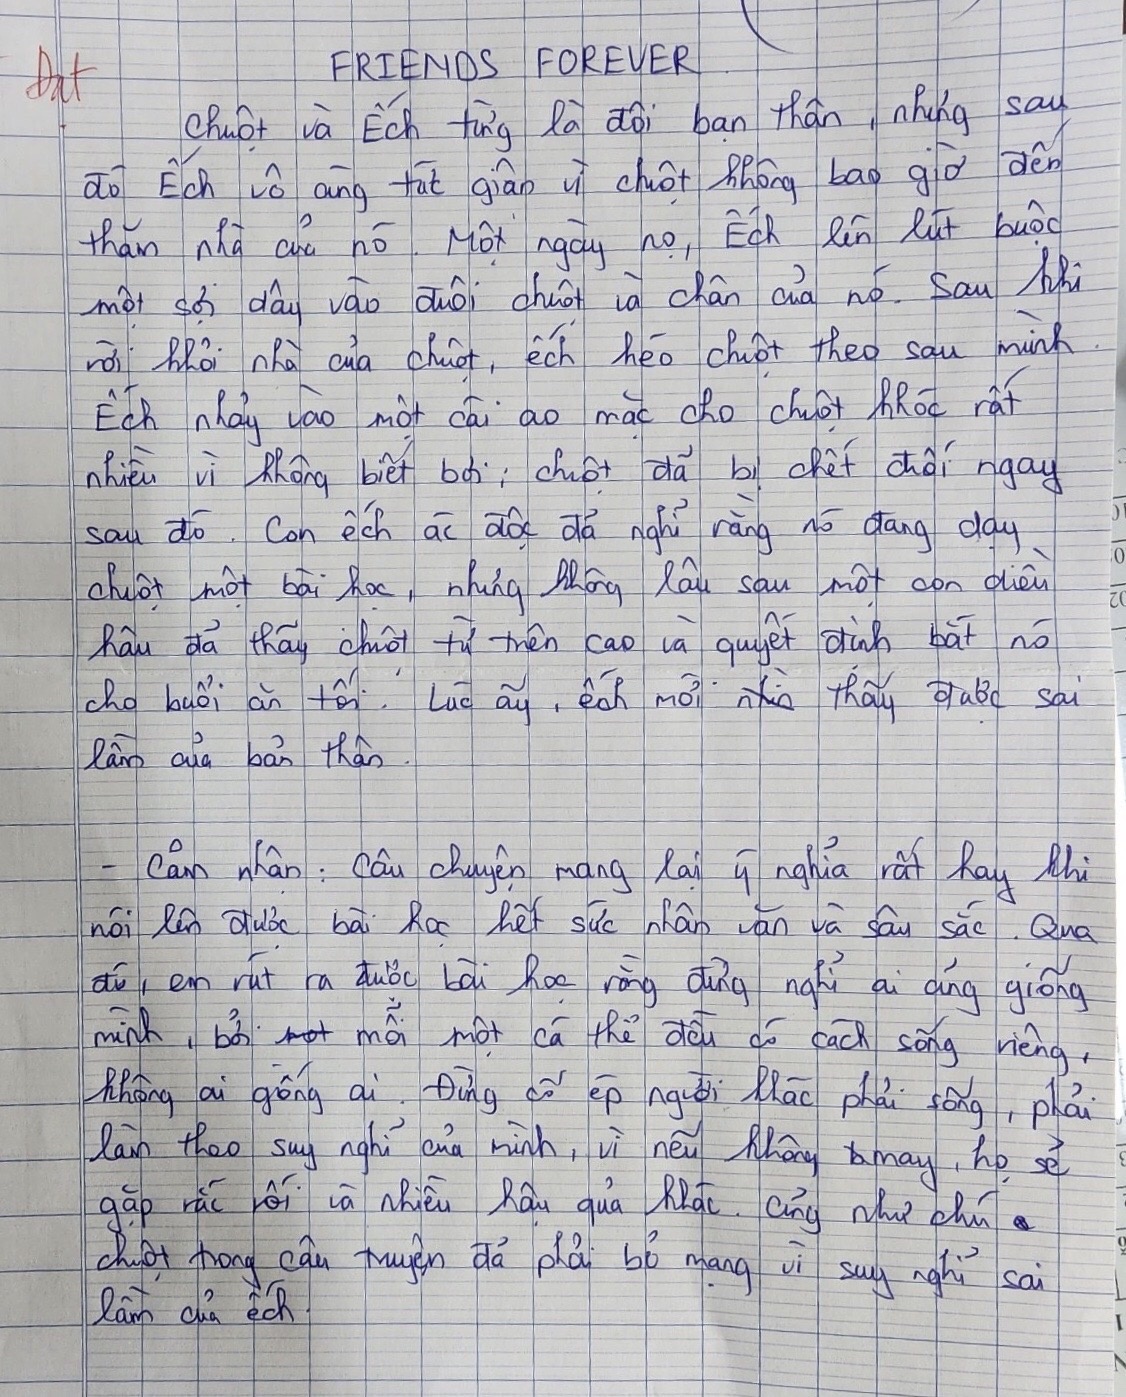 Đạt
FRIENDS FOREVER
Chuột và Ếch từng là đôi bạn thân, nhưng sau
đó Ếch vô cùng tức giận vì chuột không bao giờ đến
thăm nhà của nó. Một ngày nọ, Ếch lén lút buộc
một sợi dây vào đuôi chuột và chân của nó. Sau khi
rời khỏi nhà của chuột, ếch kéo chuột theo sau mình.
Ếch nhảy vào một cái ao mặc cho chuột khóc rất
nhiều vì không biết bơi, chuột đã bị chết đuối ngay
sau đó. Con ếch ác độc đã nghĩ rằng nó đang dạy
chuột một bài học, nhưng không lâu sau một con diều
hâu đã thấy chuột từ trên cao và quyết định bắt nó
cho buổi ăn tối. Lúc ấy, ếch mới thấy được sai
lầm của bản thân.
- Cảm nhận: Câu chuyện mang lại ý nghĩa rất hay khi
nói lên được bài học hết sức nhân văn và sâu sắc. Qua
đó, em rút ra được bài học rằng đừng nghĩ ai cũng giống
mình, bởi mỗi một cá thể đều có cách sống riêng,
không ai giống ai. Đừng cố ép người khác phải sống, phải
làm theo suy nghĩ của mình, vì nếu không may, họ sẽ
gặp rắc rối và nhiều hậu quả khác. Cũng như chú
chuột trong câu truyện đã phải bỏ mạng vì suy nghĩ sai
lầm của ếch.